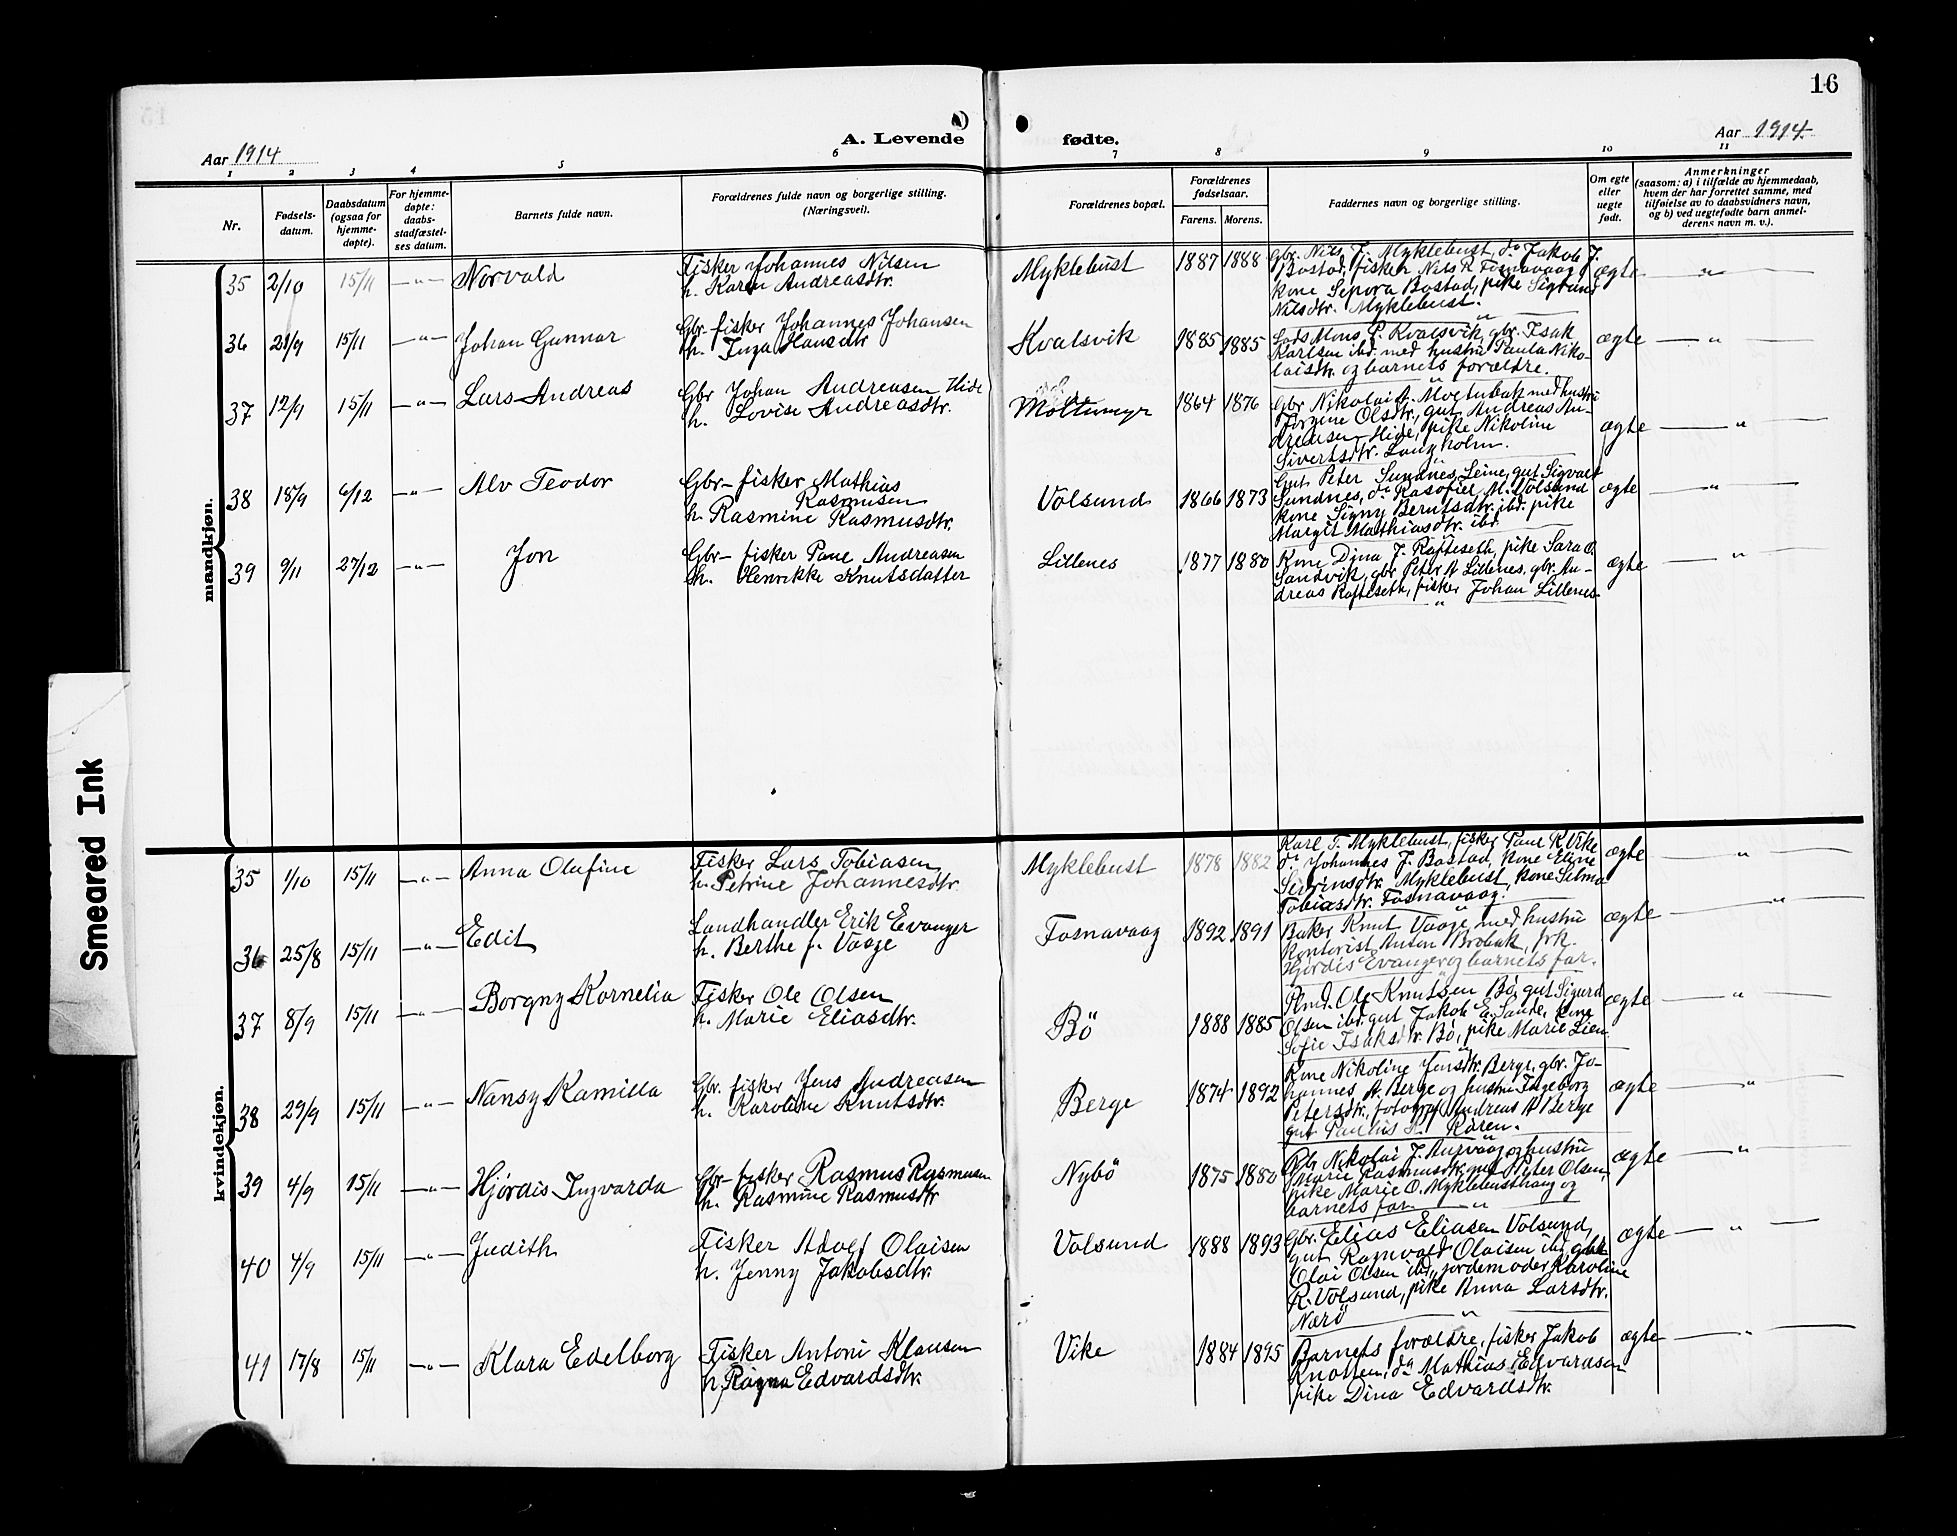 16
A. Levende fødte.
Aar 1914
Aar 1914
1 2 3 4 5 6 7 8 9 10 11
Nr.
Fødsels-
datum.
Daabsdatum
(ogsaa for
hjemme-
døpte).
For hjemme-
døpte:
daabs-
stadfæstel-
ses datum.
Barnets fulde navn.
Forældrenes fulde navn og borgerlige stilling.
(Næringsvei).
Forældrenes bopæl.
Forældrenes
fødselsaar.
Farens. Morens.
Faddernes navn og borgerlige stilling.
Om egte
eller
uegte
født.
Anmerkninger
(saasom: a) i tilfælde av hjemmedaab,
hvem der har forrettet samme, med
tilføielse av to daabsvidners navn,
og b) ved uegtefødte barn anmel-
derens navn m. v.).
mandkjøn.
35 2/10 15/11 —"— Norvald
Fisker Johannes Nilsen
h. Karen Andreasdtr.
Myklebust 1887 1888
Gbr. Nils J. Myklebust, do Jakob J.
Bostad, fisker Nils R. Fosnavaag
kone Sepora Bostad, pike Sigrun
Nilsdtr. Myklebust.
ægte —"—
36 21/9 15/11 —"— Johan Gunnar
Gbr. fisker Johannes Johansen
h. Inga Hansdtr
Kvalsvik 1885 1885
Lods Mons P. Kvalsvik, gbr. Isak
Karlsen ibd. med hustru Paula Niko-
laisdtr. og barnets forældre.
ægte —"—
37 12/9 15/11 —"— Lars Andreas
Gbr Johan Andreasen Hide
h. Lovise Andreasdtr.
Moltumyr 1864 1876
Gbr Nikolai A. Mogtubak med hustru
Jorgine Olsdtr., gut Andreas An-
dreasen Hide, pike Nikoline
Sivertsdtr. Langholm.
ægte —"—
38 18/9 6/12 —"— Alv Teodor
Gbr-fisker Mathias
Rasmusen
h. Rasmine Rasmusdtr.
Volsund 1866 1873
Gut Peter Sundnes, Leine, gut Sigvald
Sundnes, do Rasofiel M. Volsund
kone Signy Berntsdtr. ibd. pike
Margit Mathiasdtr. ibd.
ægte —"—
39 9/11 27/12 —"— Jon
Gbr- fisker Paul Andreasen
h. Henrikke Knutsdatter
Lillenes 1877 1880
Kone Dina J. Rafteseth, pike Sara O.
Sandvik, gbr Peter A Lillenes, gbr. An-
dreas Rafteseth, fisker Johan Lillenes
ægte —"—
kvindekjøn.
35 1/10 15/11 —"— Anna Olafine
Fisker Lars Tobiasen
h. Petrine Johannesdtr.
Myklebust 1878 1882
Karl T. Myklebust, fisker Paul K Vike
do Johannes J. Bostad, kone Eline
Severinsdtr. Myklebust, kone Selma
Tobiasdtr. Fosnavaag.
ægte —"—
36 25/8 15/11 —"— Edit
Landhandler Erik Evanger
h. Berthe f. Vaage
Fosnavaag 1892 1891
Baker Knut Vaage med hustru
Kontorist Anton Brobak, frk.
Hjørdis Evanger og barnets far.
ægte —"—
37 8/9 15/11 —"— Borgny Kornelia
Fisker Ole Olsen
h. Marie Eliasdtr.
Bö 1888 1885
Plmd. Ole Knutsen Bö, gut Sigurd
Olsen ibd. gut Jakob E. Sande, kone
Sofie Isaksdtr. Bö, pike Marie Lien
ægte —"—
38 29/9 15/11 —"— Nansy Kamilla
Gbr. fisker Jens Andreasen
h. Karoline Knutsdtr.
Berge 1874 1892
Kone Nikoline Jensdtr. Berge, gbr. Jo-
hannes A. Berge og hustru Ingeborg
Petersdtr., fotograf Andreas A Berge
gut Paulus P. Kören.
ægte —"—
39 4/9 15/11 —"— Hjördis Ingvarda
Gbr-fisker Rasmus Rasmusen
h. Rasmine Rasmusdtr
Nybö 1875 1880
Gbr Nikolai J. Aurvaag og hustru
Marie Rasmusdtr. gut Peter Olsen,
pike Marie O. Myklebusthaug og
barnets far
ægte —"—
40 4/9 15/11 —"— Judith
Fisker Adolf Olaisen
h. Jenny Jakobsdtr.
Volsund 1888 1893
Gbr. Elias Eliasen Volsund,
gut Ragnvald Olaisen ibd. gbr
Olai Olsen ibd., jordemoder Karoline
R. Volsund, pike Anna Larsdtr.
Nærö
ægte —"—
41 17/8 15/11 —"— Klara Edelborg
Fisker Antoni Klausen
h. Ragna Edvardsdtr.
Vike 1884 1895
Barnets forældre, fisker Jakob
Knotten, do Mathias Edvardsen
pike Dina Edvardsdtr.
ægte —"—
Smeared Ink